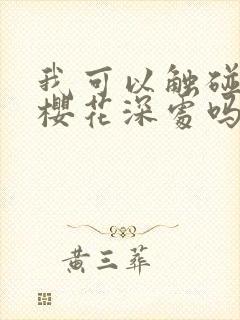 我可以触碰
樱花深处吗
黄三葬